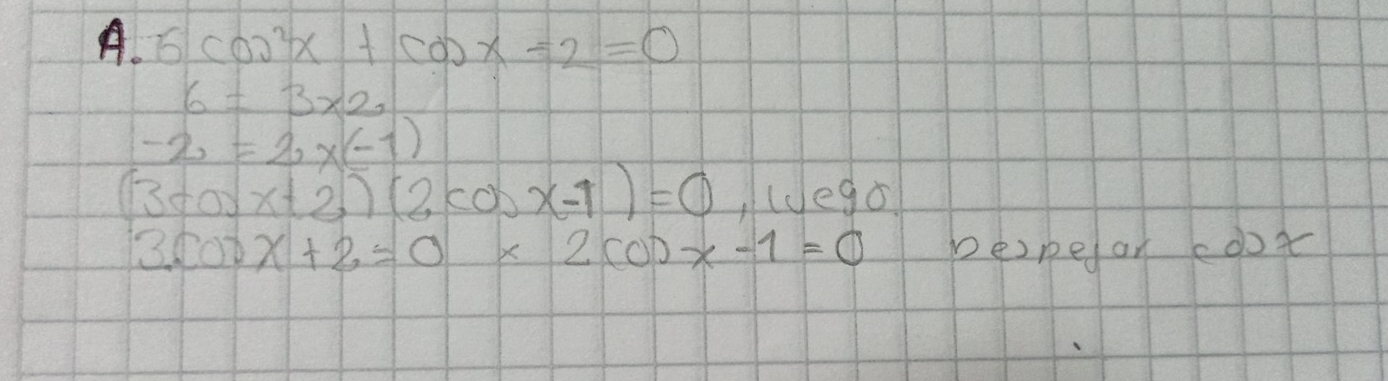 A. 6 cos²x + cos x - 2 = 0
6 = 3x2
-2 = 2x(-1)
(3cosx+2)(2cosx-1)=0, luego
3cosx+2=0 x 2cosx-1=0 Despejar cosx